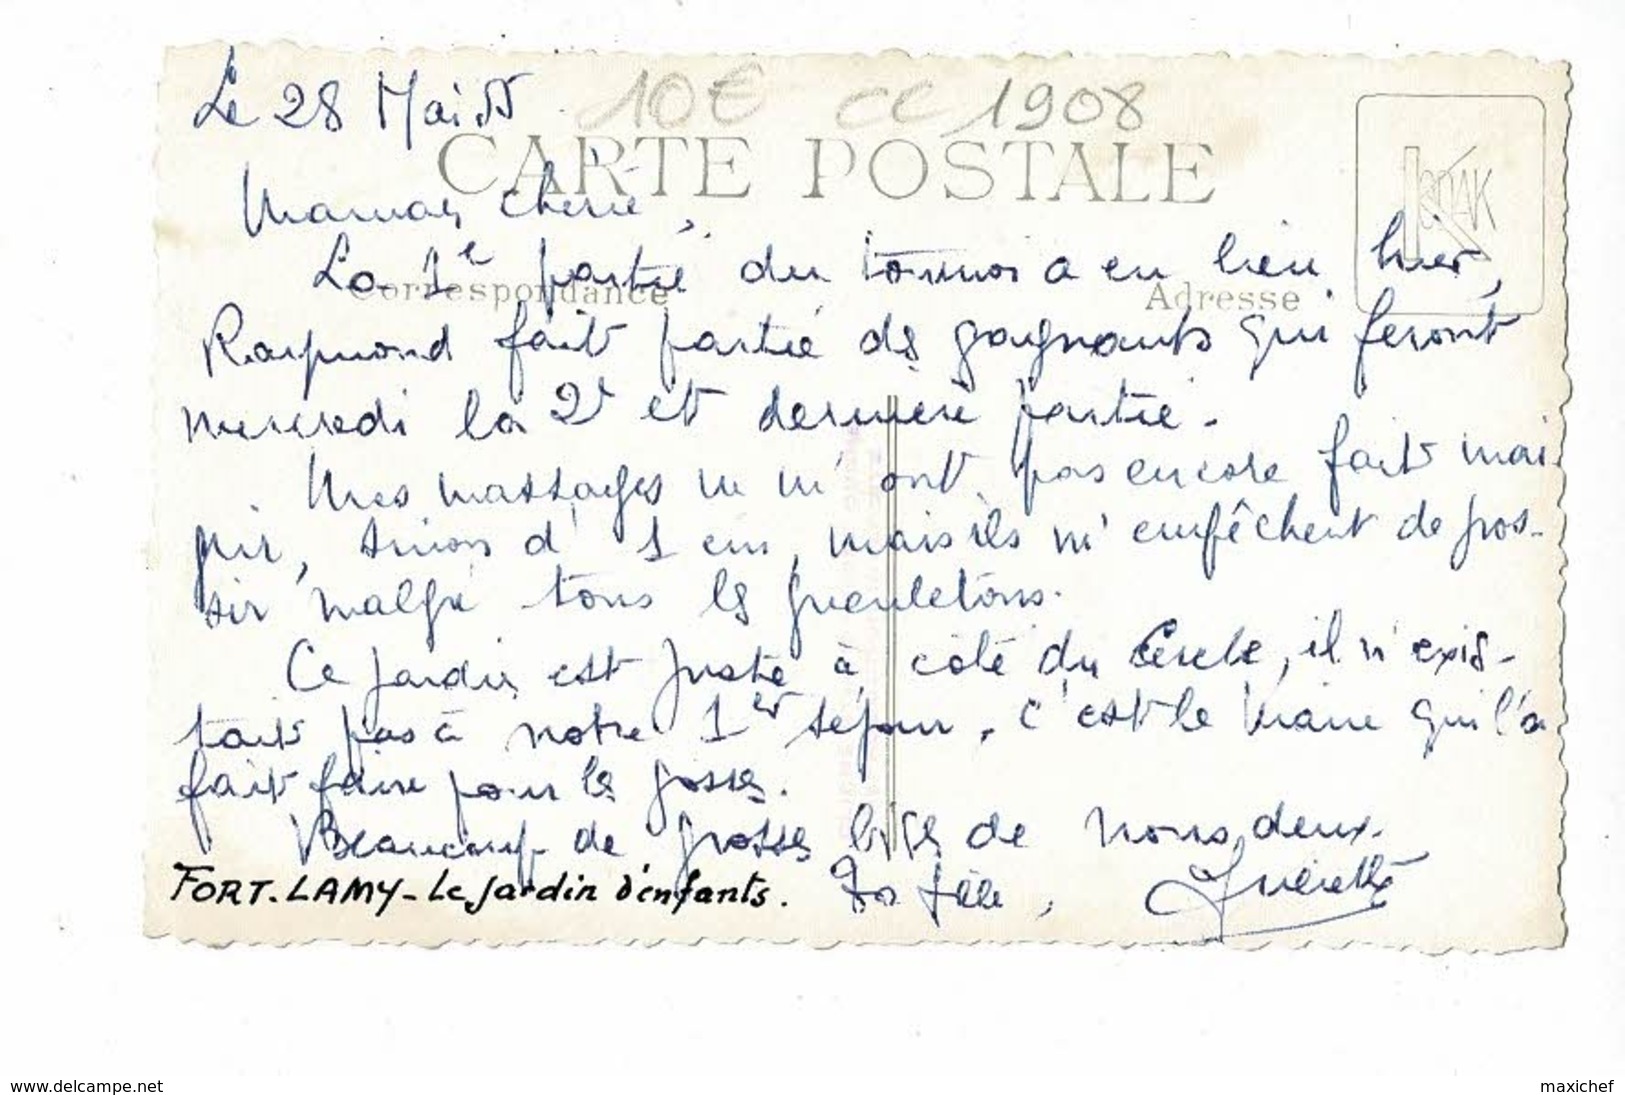 Le 28 Mai 55
10€ CC 1908
CARTE POSTALE
KODAK
Maman chérie,
Correspondance
Adresse
La 1e partie du tournoi a eu lieu hier,
Raymond fait partie des gagnants qui feront
mercredi la 2e et dernière partie.
Mes massages ne m'ont pas encore fait mai-
grir, sinon d' 1 cm, mais ils m'empêchent de gros-
sir malgré tous les gueuletons.
Ce jardin est juste à côté du Cercle, il n'exis-
tait pas à notre 1er séjour. C'est le maire qui l'a
fait faire pour les gosses.
Beaucoup de grosses bises de nous deux.
FORT-LAMY - Le Jardin d'enfants.
Ta fille,
www.delcampe.net
maxichef